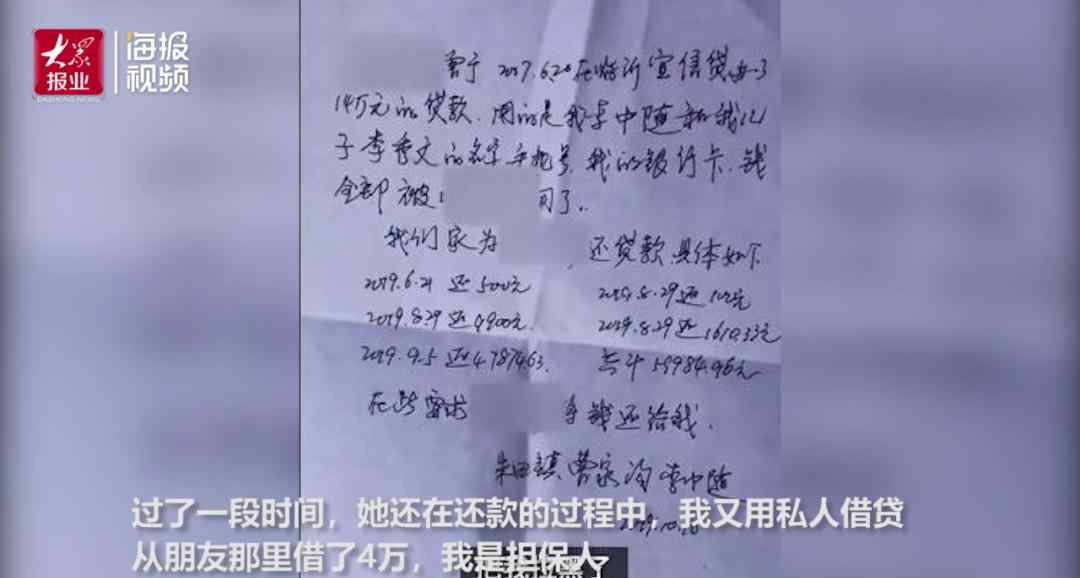 大众报业
DAZHONG NEWS
海报视频
曾于2017.6.20在临沂宜信贷办了
14万元的贷款.用的是我李中随和我儿
子李秀文的名字手机号.我的银行卡.钱
全部被 用了.
我们家为 还贷款具体如下
2019.6.21还500元 2019.8.29还102元
2019.8.29还9900元. 2019.8.29还1610.33元
2019.9.5还47874.63. 共计59984.96元
在此要求 将钱还给我.
朱田镇曹家沟李中随
过了一段时间，她还在还款的过程中，我又用私人借贷
从朋友那里借了4万，我是担保人